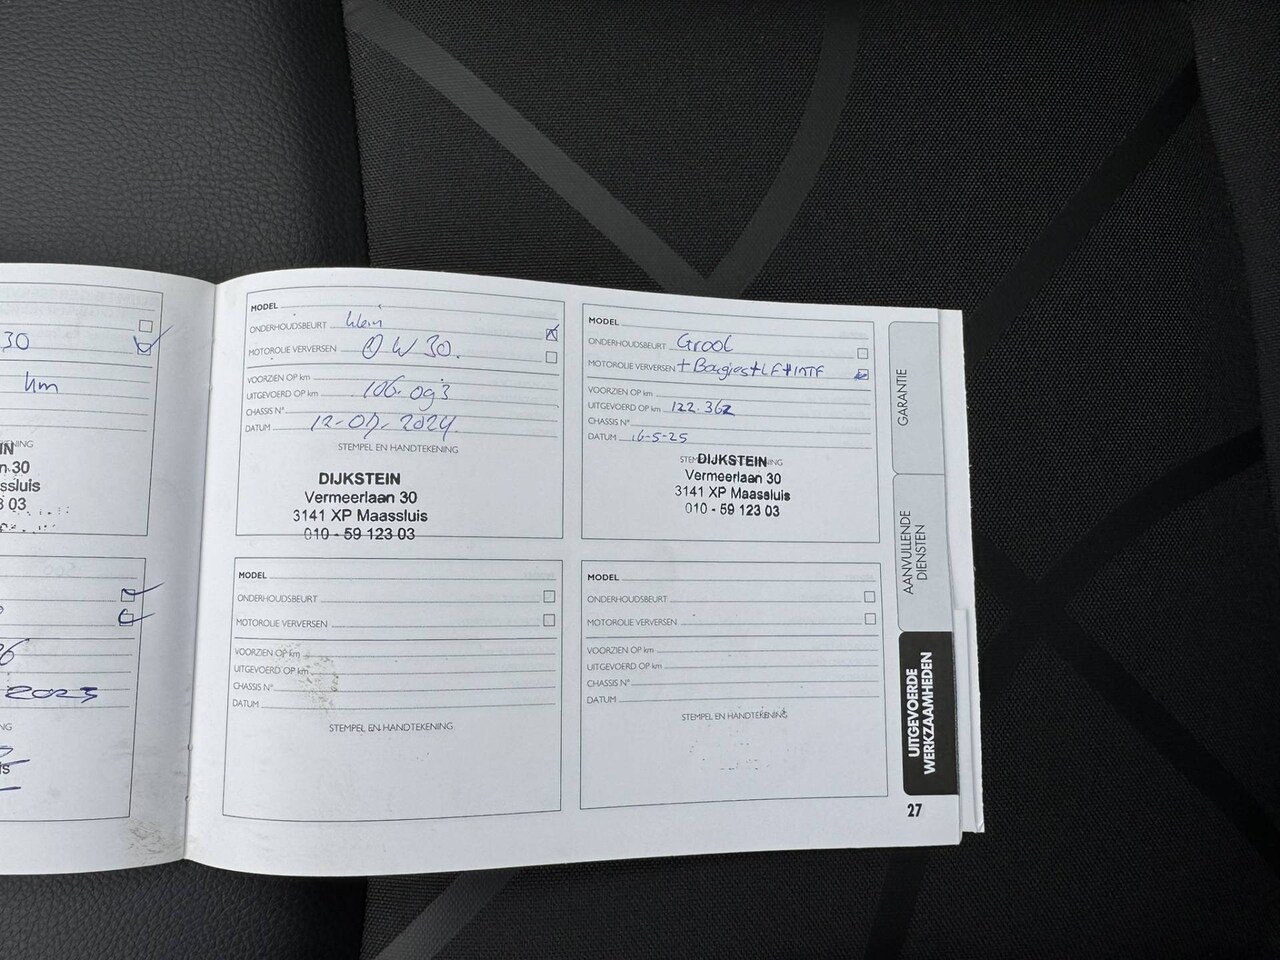 30
km
n 30
ssluis
3 03
2023
MODEL
ONDERHOUDSBEURT klein
MOTOROLIE VERVERSEN 0 W 30.
VOORZIEN OP km
UITGEVOERD OP km 106.093
CHASSIS N°
DATUM 12-07-2024.
STEMPEL EN HANDTEKENING
DIJKSTEIN
Vermeerlaan 30
3141 XP Maassluis
010 - 59 123 03
MODEL
ONDERHOUDSBEURT Groot
MOTOROLIE VERVERSEN + Bougies + LF + INTF
VOORZIEN OP km
UITGEVOERD OP km 122.362
CHASSIS N°
DATUM 16-5-25
DIJKSTEIN
Vermeerlaan 30
3141 XP Maassluis
010 - 59 123 03
MODEL
ONDERHOUDSBEURT
MOTOROLIE VERVERSEN
VOORZIEN OP km
UITGEVOERD OP km
CHASSIS N°
DATUM
STEMPEL EN HANDTEKENING
MODEL
ONDERHOUDSBEURT
MOTOROLIE VERVERSEN
VOORZIEN OP km
UITGEVOERD OP km
CHASSIS N°
DATUM
STEMPEL EN HANDTEKENING
GARANTIE
AANVULLENDE
DIENSTEN
UITGEVOERDE
WERKZAAMHEDEN
27